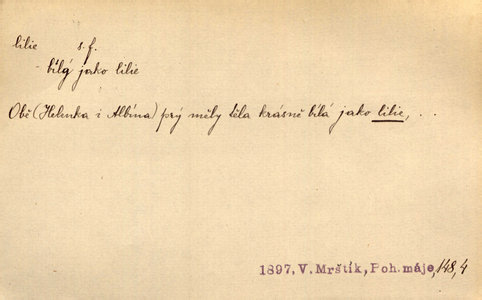 lilie s.f.
- bílý jako lilie
Obě (Helenka i Albína) prý měly těla krásně bílá jako lilie, ..
1897, V. Mrštík, Poh. máje, 148, 4